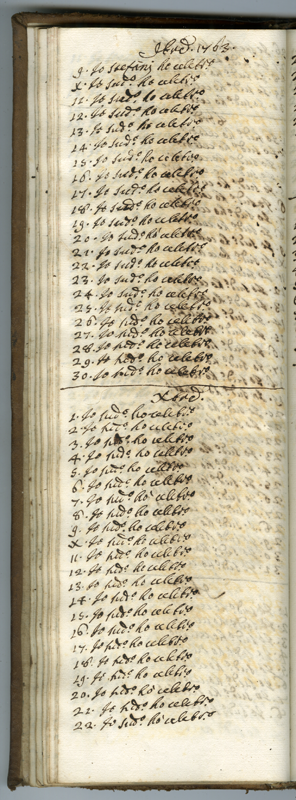 9bre. 1763.
9. Io stefani ho celebto
X. Io sudo. ho celebto
11. Io sudo. ho celebto
12. Io sudo. ho celebto
13. Io sudo. ho celebto
14. Io sudo. ho celebto
15. Io sudo. ho celebto
16. Io sudo. ho celebto
17. Io sudo. ho celebto
18. Io sudo. ho celebto
19. Io sudo. ho celebto
20. Io sudo. ho celebto
21. Io sudo. ho celebto
22. Io sudo. ho celebto
23. Io sudo. ho celebto
24. Io sudo. ho celebto
25. Io sudo. ho celebto
26. Io sudo. ho celebto
27. Io sudo. ho celebto
28. Io sudo. ho celebto
29. Io sudo. ho celebto
30. Io sudo. ho celebto
Xbre.
1. Io sudo. ho celebto
2. Io sudo. ho celebto
3. Io sudo. ho celebto
4. Io sudo. ho celebto
5. Io sudo. ho celebto
6. Io sudo. ho celebto
7. Io sudo. ho celebto
8. Io sudo. ho celebto
9. Io sudo. ho celebto
X. Io sudo. ho celebto
11. Io sudo. ho celebto
12. Io sudo. ho celebto
13. Io sudo. ho celebto
14. Io sudo. ho celebto
15. Io sudo. ho celebto
16. Io sudo. ho celebto
17. Io sudo. ho celebto
18. Io sudo. ho celebto
19. Io sudo. ho celebto
20. Io sudo. ho celebto
21. Io sudo. ho celebto
22. Io sudo. ho celebto